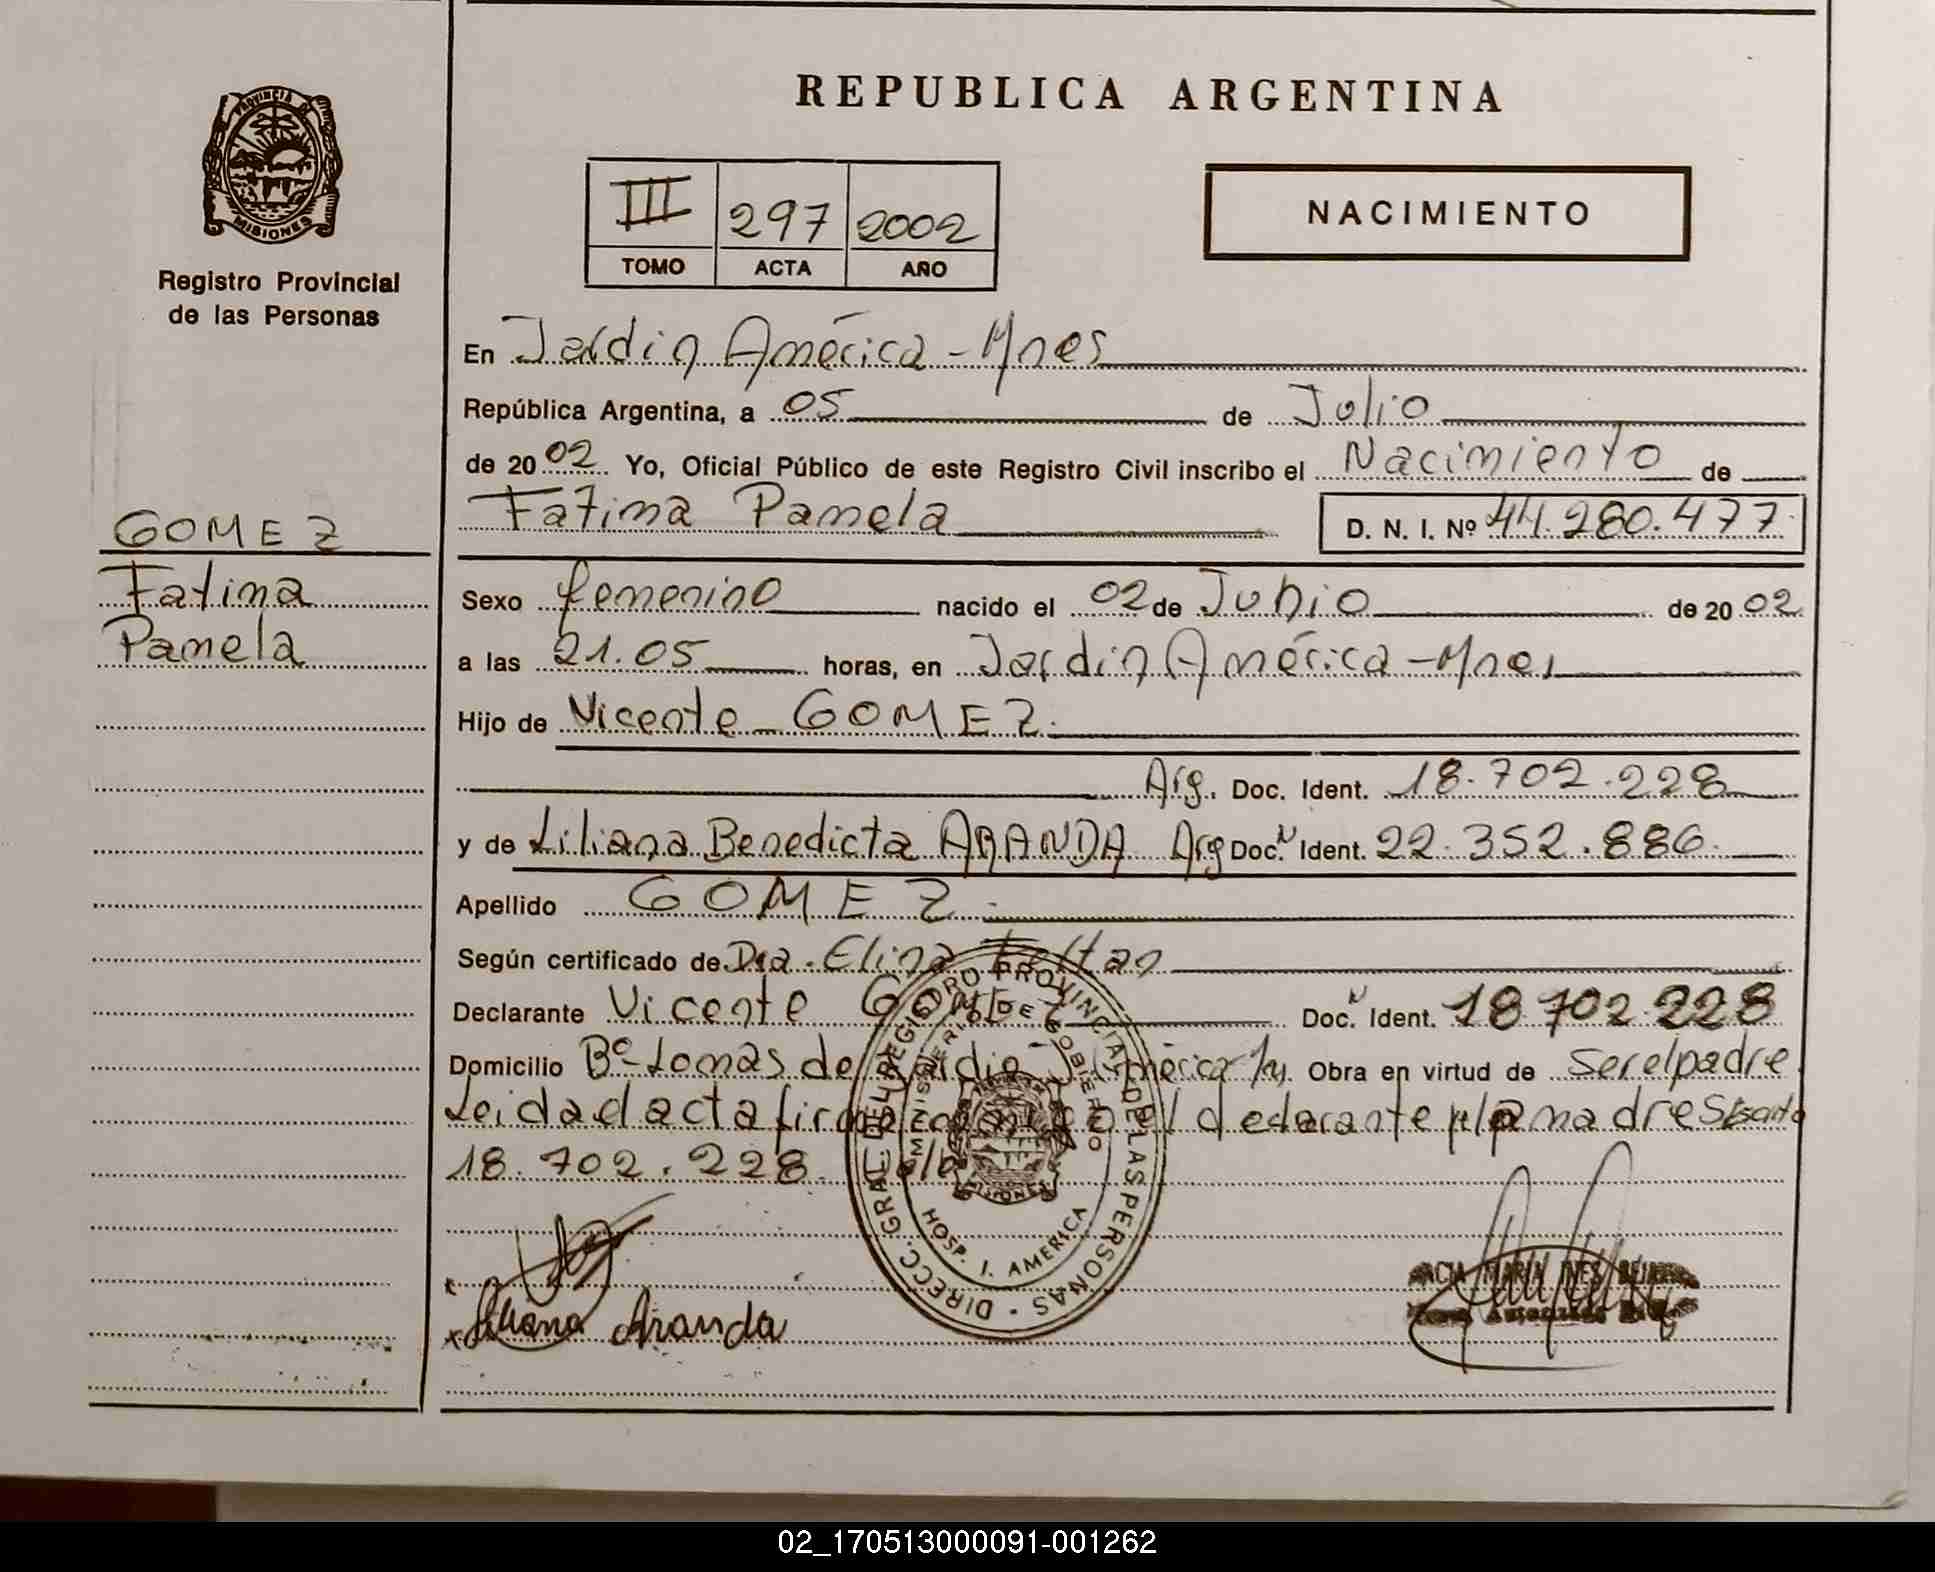 REPUBLICA ARGENTINA
PROVINCIA DE
MISIONES
Registro Provincial
de las Personas
III 297 2002
TOMO ACTA AÑO
NACIMIENTO
En Jardin América - Mnes
República Argentina, a 05 de Julio
de 20 02 Yo, Oficial Público de este Registro Civil inscribo el Nacimiento de
Fatima Pamela D. N. I. Nº 44.280.477
GOMEZ
Fatima
Pamela
Sexo femenino nacido el 02 de Junio de 20 02
a las 21.05 horas, en Jardin América - Mnes
Hijo de Vicente GOMEZ.
Arg. Doc. Ident. 18.702.228
y de Liliana Benedicta ARANDA Arg Doc. N Ident. 22.352.886.
Apellido GOMEZ.
Según certificado de Dra. Elina
Declarante Vicente GOMEZ Doc. N Ident. 18 702 228
Domicilio Bº Lomas de Jardin América Obra en virtud de ser el padre
Leida el acta el declarante y la madre
18.702.228.
DIRECC. GRAL. DEL REGISTRO PROVINCIAL DE LAS PERSONAS
MINISTERIO DE GOBIERNO
MISIONES
HOSP. J. AMERICA
x Liliana Aranda
MARIA INES
02_170513000091-001262